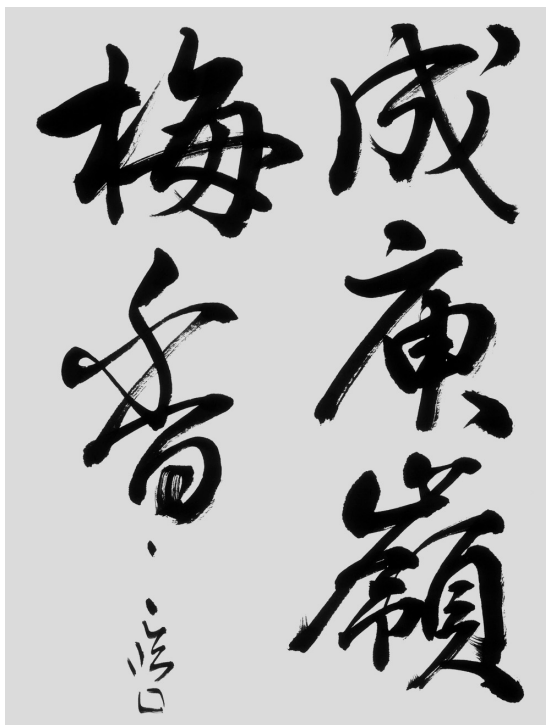 成庾嶺
梅香